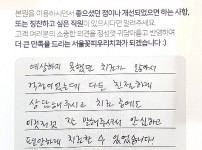 본원을 이용하시면서 좋으셨던 점이나 개선되었으면 하는 사항,
또는 칭찬하고 싶은 직원이 있으시다면 알려주세요.
고객 여러분의 소중한 의견을 정성껏 귀담아듣고 반영하여
더 큰 만족을 드리는 서울꽃피우리치과가 되겠습니다 :)
예상하지 못했던 치료가 있어서
걱정이었는데 다들 친절하게
상담해주시고 치료 중에도
이것저것 잘 말해주셔서 안심하고
편안하게 치료할 수 있었습니다